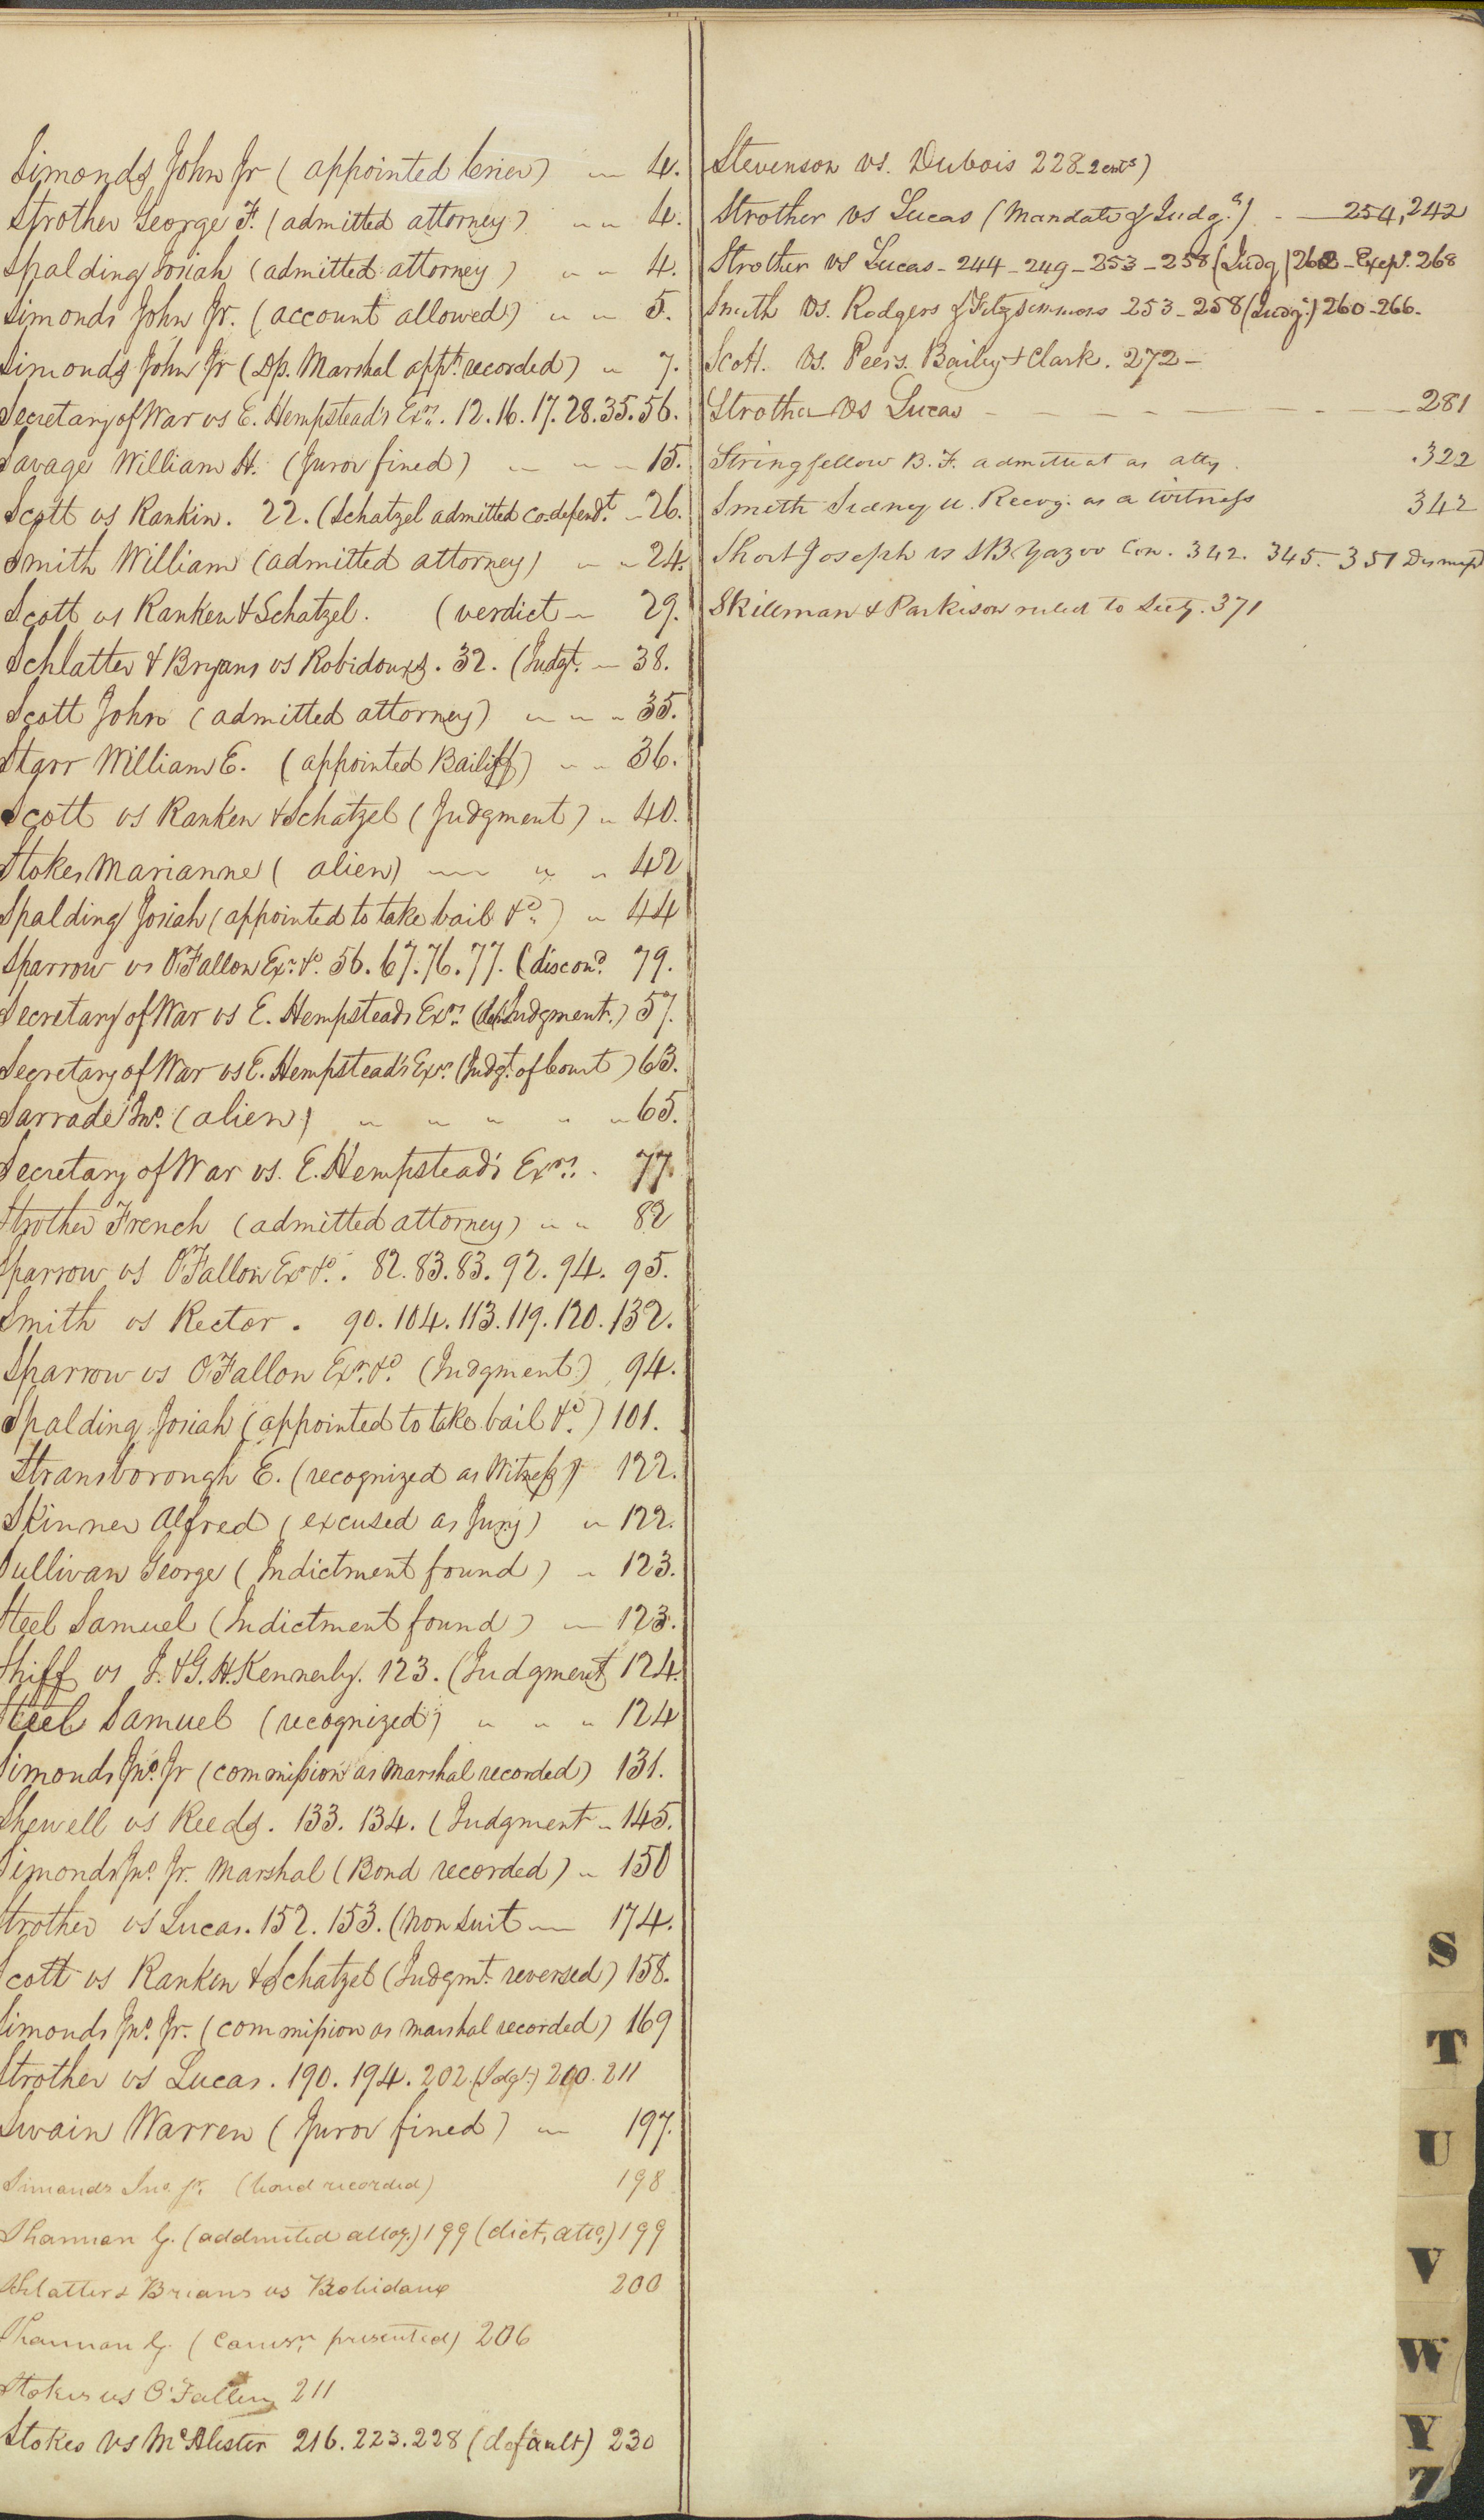 Simonds John Jr (appointed Crier) 4.
Strother George F. (admitted attorney) 4.
Spalding Josiah (admitted attorney) 4.
Simonds John Jr. (account allowed) 5.
Simonds John Jr (Dp. Marshal appt. recorded) 7.
Secretary of War vs E. Hempstead's Exrs. 12. 16. 17. 28. 35. 56.
Savage William H. (Juror fined) 15.
Scott vs Rankin. 22. (Schatzel admitted co-defendt. 26.
Smith William (admitted attorney) 24.
Scott vs Ranken & Schatzel. (verdict 29.
Schlatter & Bryans vs Robidoux. 32. (Judgt. 38.
Scott John (admitted attorney) 35.
Starr William E. (appointed Bailiff) 36.
Scott vs Ranken & Schatzel (Judgment) 40.
Stokes Marianne (alien) 42
Spalding Josiah (appointed to take bail &c.) 44
Sparrow vs O'Fallon Exr. &c. 56. 67. 76. 77. (discond. 79.
Secretary of War vs E. Hempsteads Exrs. (Judgment.) 57.
Secretary of War vs E. Hempstead's Exrs. (Judgt. of Court) 63.
Sarrade Jno. (alien) 65.
Secretary of War vs. E. Hempstead's Exrs. 77.
Strother French (admitted attorney) 82
Sparrow vs O'Fallon Exr &c. 82. 83. 83. 92. 94. 95.
Smith vs Rector. 90. 104. 113. 119. 120. 132.
Sparrow vs O'Fallon Exr. &c. (Judgment) 94.
Spalding Josiah (appointed to take bail &c.) 101.
Stransborough E. (recognized as Witness) 122.
Skinner Alfred (excused as Jury) 122.
Sullivan George (Indictment found) 123.
Steel Samuel (Indictment found) 123.
Shiff vs J. & G. H. Kennerly. 123. (Judgment 124.
Steel Samuel (recognized) 124
Simonds Jno. Jr (commission as Marshal recorded) 131.
Shewell vs Reeds. 133. 134. (Judgment 145.
Simonds Jno. Jr. Marshal (Bond recorded) 150
Strother vs Lucas. 152. 153. (Non Suit 174.
Scott vs Ranken & Schatzel (Judgmt. reversed) 158.
Simonds Jno. Jr. (commission as marshal recorded) 169
Strother vs Lucas. 190. 194. 202. (Jdgt.) 200. 211
Swain Warren (Juror fined) 197.
Simonds Jno. Jr. (bond recorded) 198
Shannon G. (addmited attoy.) 199 (dict. atto.) 199
Schlatter & Brians vs Robidoux 200
Shannon G. (Comssn. presented) 206
Stokes vs O'Fallon 211
Stokes vs McAlister 216. 223. 228 (default) 230
Stevenson vs. Dubois 228 - 2 ents)
Strother vs Lucas (Mandate & Judg.) 254, 242
Strother vs Lucas - 244 - 249 - 253 - 258 (Judg) 262 - Excpt. 268
Smith vs. Rodgers & Fitzsimmons 253 - 258 (Judg.) 260 - 266.
Scott. vs. Peers. Bailey & Clark. 272 -
Strother vs Lucas 281
Stringfellow B. F. admitted as atty. 322
Smith Sidney U. Recog. as a witness 342
Short Joseph vs SB Yazoo Con. 342. 345. 351 Dismisd
Skillman & Parkison ruled to 371
S
T
U
V
W
Y
Z